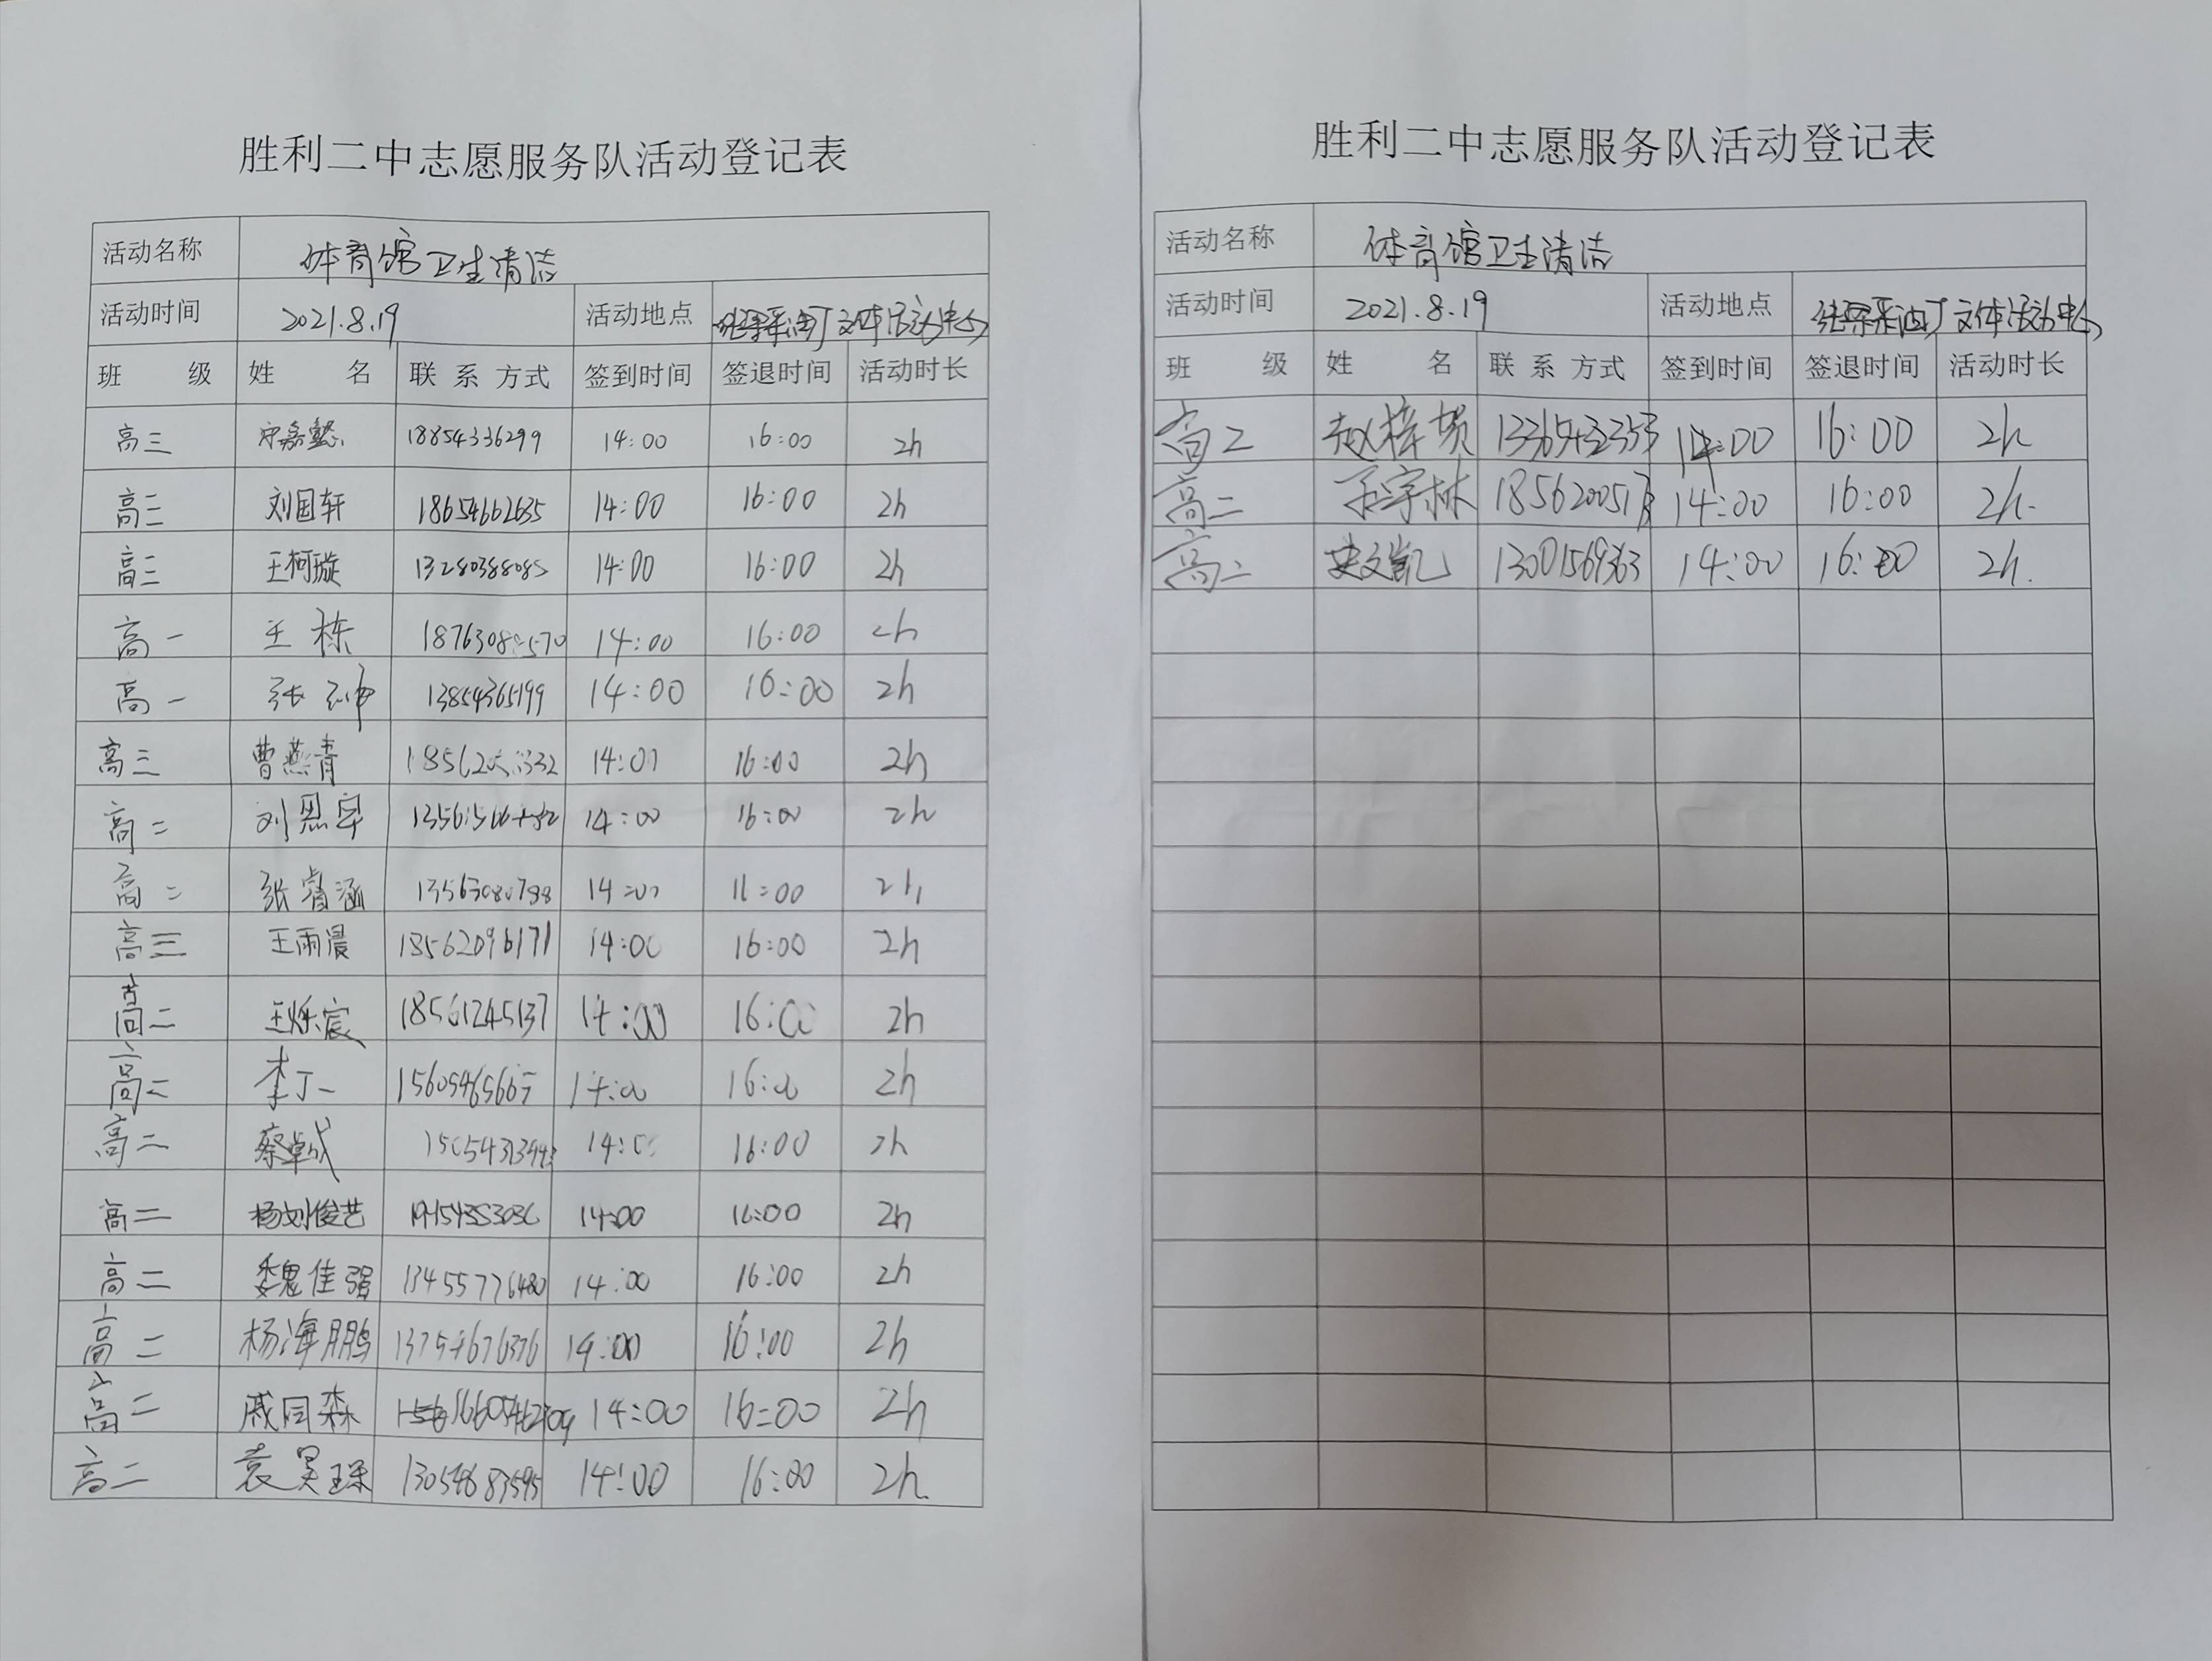 胜利二中志愿服务队活动登记表
活动名称 体育馆卫生清洁
活动时间 2021.8.19 活动地点 纯梁采油厂文体活动中心
班 级 姓 名 联系方式 签到时间 签退时间 活动时长
高三 宋嘉懿 18854336299 14:00 16:00 2h
高三 刘国轩 18654662635 14:00 16:00 2h
高三 王柯璇 13280388085 14:00 16:00 2h
高一 王栋 14:00 16:00 2h
高一 张 13854365199 14:00 16:00 2h
高三 曹燕青 14:00 16:00 2h
高二 刘恩宇 14:00 16:00 2h
高二 张睿涵 14:00 16:00 2h
高三 王雨晨 13562096171 14:00 16:00 2h
高二 王烁宸 18561245137 14:00 16:00 2h
高二 李丁一 14:00 16:00 2h
高二 蔡卓成 14:00 16:00 2h
高二 杨刘俊艺 14:00 16:00 2h
高二 魏佳强 13455776480 14:00 16:00 2h
高二 杨海鹏 13754676376 14:00 16:00 2h
高二 戚同森 14:00 16:00 2h
高二 袁昊琛 13054683595 14:00 16:00 2h
胜利二中志愿服务队活动登记表
活动名称 体育馆卫生清洁
活动时间 2021.8.19 活动地点 纯梁采油厂文体活动中心
班 级 姓 名 联系方式 签到时间 签退时间 活动时长
高二 赵梓贺 14:00 16:00 2h
高二 宇林 14:00 16:00 2h.
高二 史文凯 13001569363 14:00 16:00 2h.